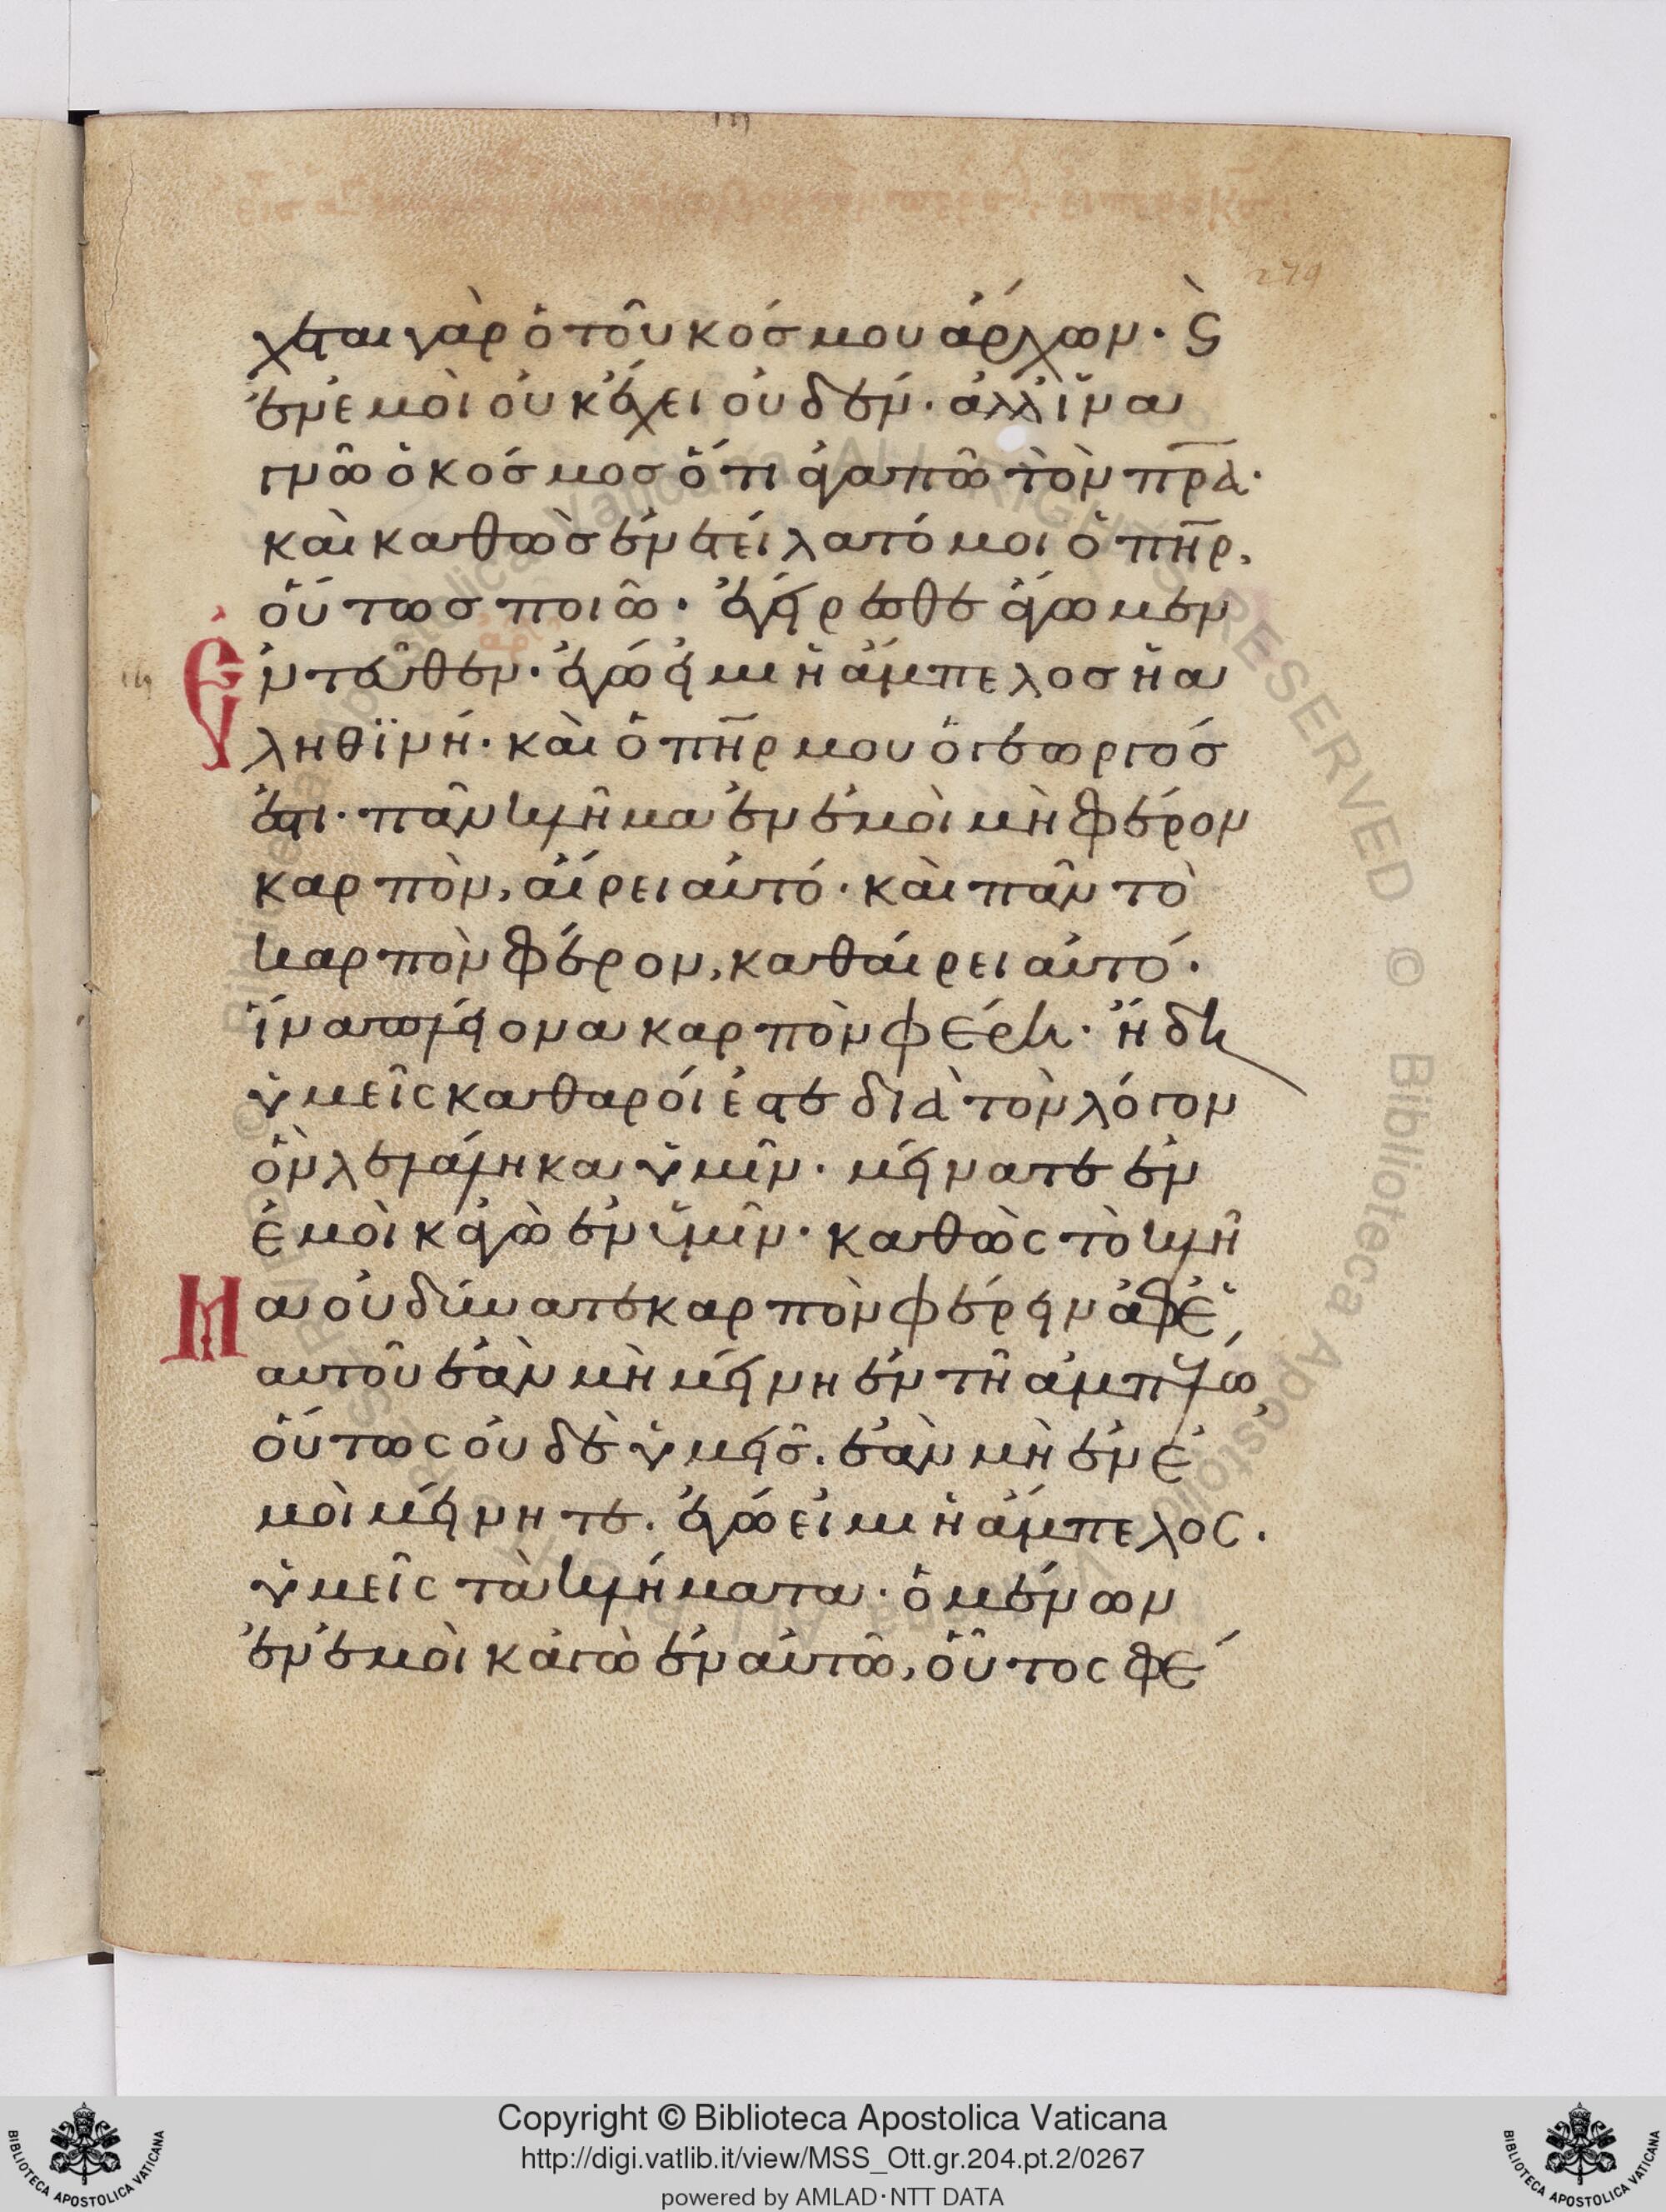 279
χεται γὰρ ὁ τοῦ κόσμου ἄρχων· ϛ̀
ἐν ἐμοὶ οὐκ ἔχει οὐδέν· ἀλλ' ἵνα
γνῶ ὁ κόσμος ὅτι ἀγαπῶ τὸν πρ̅α·
καὶ καθὼς ἐνετείλατό μοι ὁ πη̅ρ,
οὕτως ποιῶ· ἐγείρεσθε ἄγωμεν
ἐντεῦθεν· ἐγώ εἰμι ἡ ἄμπελος ἡ ἀ
ληθϊνή· καὶ ὁ πη̅ρ μου ὁ γεωργός
ἐστι· πᾶν κλῆμα ἐν ἐμοὶ μὴ φέρον
καρπὸν, αἴρει αὐτό· καὶ πᾶν τὸ
καρπὸν φέρον, καθαίρει αὐτό·
ἵνα πλείονα καρπὸν φέρη· ἤδη
ὑμεῖς καθαροί ἐστε διὰ τὸν λόγον
ὃν λελάληκα ὑμῖν· μείνατε ἐν
ἐμοὶ κἀγὼ ἐν ὑμῖν· καθὼς τὸ κλῆ
μα οὐ δύναται καρπὸν φέρειν ἀφ' ἑ
αυτοῦ ἐὰν μὴ μείνη ἐν τῆ ἀμπέλω,
οὕτως οὐδὲ ὑμεῖς. ἐὰν μὴ ἐν ἐ
μοὶ μείνητε. ἐγώ εἰμι ἡ ἄμπελος.
ὑμεῖς τὰ κλήματα· ὁ μένων
ἐν ἐμοὶ κἀγὼ ἐν αὐτῶ, οὗτος φέ
Copyright © Biblioteca Apostolica Vaticana
http://digi.vatlib.it/view/MSS_Ott.gr.204.pt.2/0267
powered by AMLAD·NTT DATA